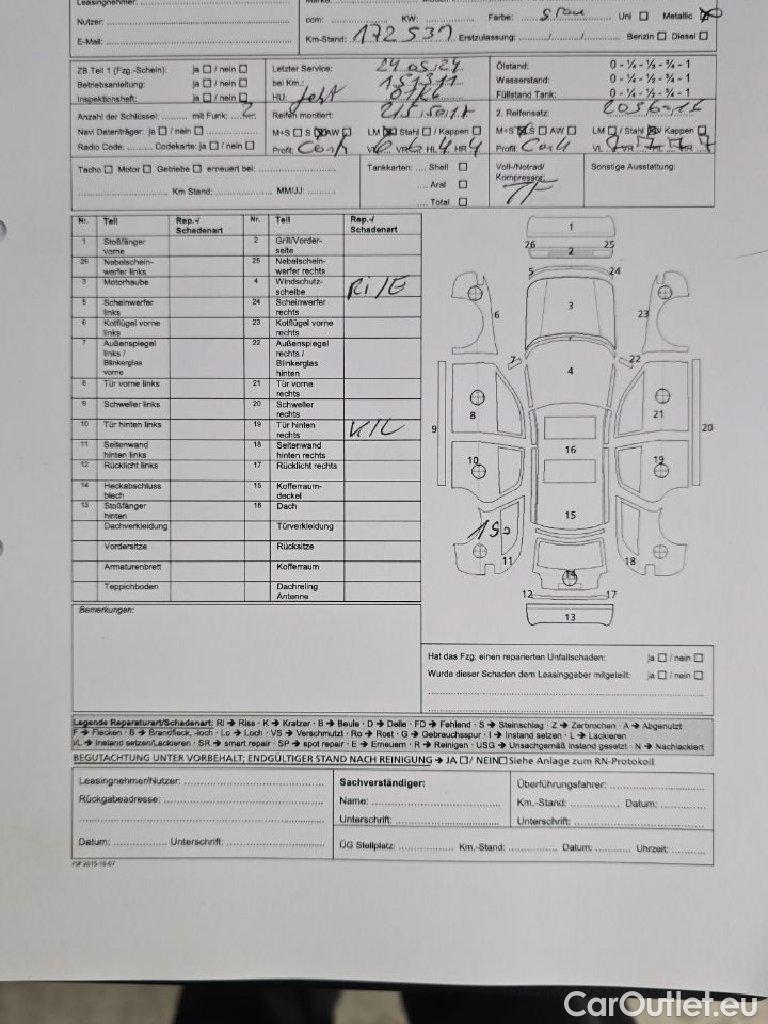 Leasingnehmer:
Nutzer:
E-Mail:
ccm: KW: Farbe: grau Uni ☐ Metallic ☒
Km-Stand: 172 531 Erstzulassung: Benzin ☐ Diesel ☐
ZB Teil 1 (Fzg.-Schein): ja ☐ / nein ☐
Betriebsanleitung: ja ☐ / nein ☐
Inspektionsheft: ja ☐ / nein ☐
Anzahl der Schlüssel: mit Funk: 2
Navi Datenträger: ja ☐ / nein ☐
Radio Code: Codekarte: ja ☐ / nein ☐
Letzter Service: 24.05.24
bei Km.: 151311
HU:
Reifen montiert:
M+S ☐ S ☒ AW ☐ LM ☒ Stahl ☐ / Kappen ☐
Profil: Conti VL 6 VR 6 HL 4 HR 4
Ölstand: 0 - ¼ - ½ - ¾ - 1
Wasserstand: 0 - ¼ - ½ - ¾ - 1
Füllstand Tank: 0 - ¼ - ½ - ¾ - 1
2. Reifensatz:
M+S ☒ S ☐ AW ☐ LM ☐ / Stahl ☒ / Kappen ☐
Profil: Conti VL 7 VR 7 HL 7 HR 7
Tacho ☐ Motor ☐ Getriebe ☐ erneuert bei:
Km Stand: MM/JJ:
Tankkarten: Shell ☐
Aral ☐
Total ☐
Voll-/Notrad/
Kompressor:
TF
Sonstige Ausstattung:
Nr. Teil Rep.-/ Schadenart Nr. Teil Rep.-/ Schadenart
1 Stoßfänger vorne 2 Grill/Vorder-seite
26 Nebelschein-werfer links 25 Nebelschein-werfer rechts
3 Motorhaube 4 Windschutz-scheibe Ri/E
5 Scheinwerfer links 24 Scheinwerfer rechts
6 Kotflügel vorne links 23 Kotflügel vorne rechts
7 Außenspiegel links / Blinkerglas vorne 22 Außenspiegel rechts / Blinkerglas hinten
8 Tür vorne links 21 Tür vorne rechts
9 Schweller links 20 Schweller rechts
10 Tür hinten links 19 Tür hinten rechts K/L
11 Seitenwand hinten links 18 Seitenwand hinten rechts
12 Rücklicht links 17 Rücklicht rechts
14 Heckabschluss blech 15 Kofferraum-deckel
13 Stoßfänger hinten 16 Dach
Dachverkleidung Türverkleidung
Vordersitze Rücksitze
Armaturenbrett Kofferraum
Teppichboden Dachreling Antenne
1
26 25
2
5 24
6 3 23
7 22
4
8 21
9 20
16
10 19
15
11 18
14
12 17
13
Bemerkungen:
Hat das Fzg. einen reparierten Unfallschaden: ja ☐ / nein ☐
Wurde dieser Schaden dem Leasinggeber mitgeteilt: ja ☐ / nein ☐
Legende Reparaturart/Schadenart: RI → Riss - K → Kratzer - B → Beule - D → Delle - FD → Fehlend - S → Steinschlag - Z → Zerbrochen - A → Abgenutzt
F → Flecken - B → Brandfleck, -loch - Lo → Loch - VS → Verschmutzt - Ro → Rost - G → Gebrauchsspur - I → Instand setzen - L → Lackieren
I/L → Instand setzen/Lackieren - SR → smart repair - SP → spot repair - E → Erneuern - R → Reinigen - USG → Unsachgemäß instand gesetzt - N → Nachlackiert
BEGUTACHTUNG UNTER VORBEHALT; ENDGÜLTIGER STAND NACH REINIGUNG → JA ☐ / NEIN ☐ Siehe Anlage zum RN-Protokoll
Leasingnehmer/Nutzer:
Rückgabeadresse:
Datum: Unterschrift:
Sachverständiger:
Name:
Unterschrift:
Überführungsfahrer:
Km.-Stand: Datum:
Unterschrift:
ÜG Stellplatz: Km.-Stand: Datum: Uhrzeit:
CarOutlet.eu